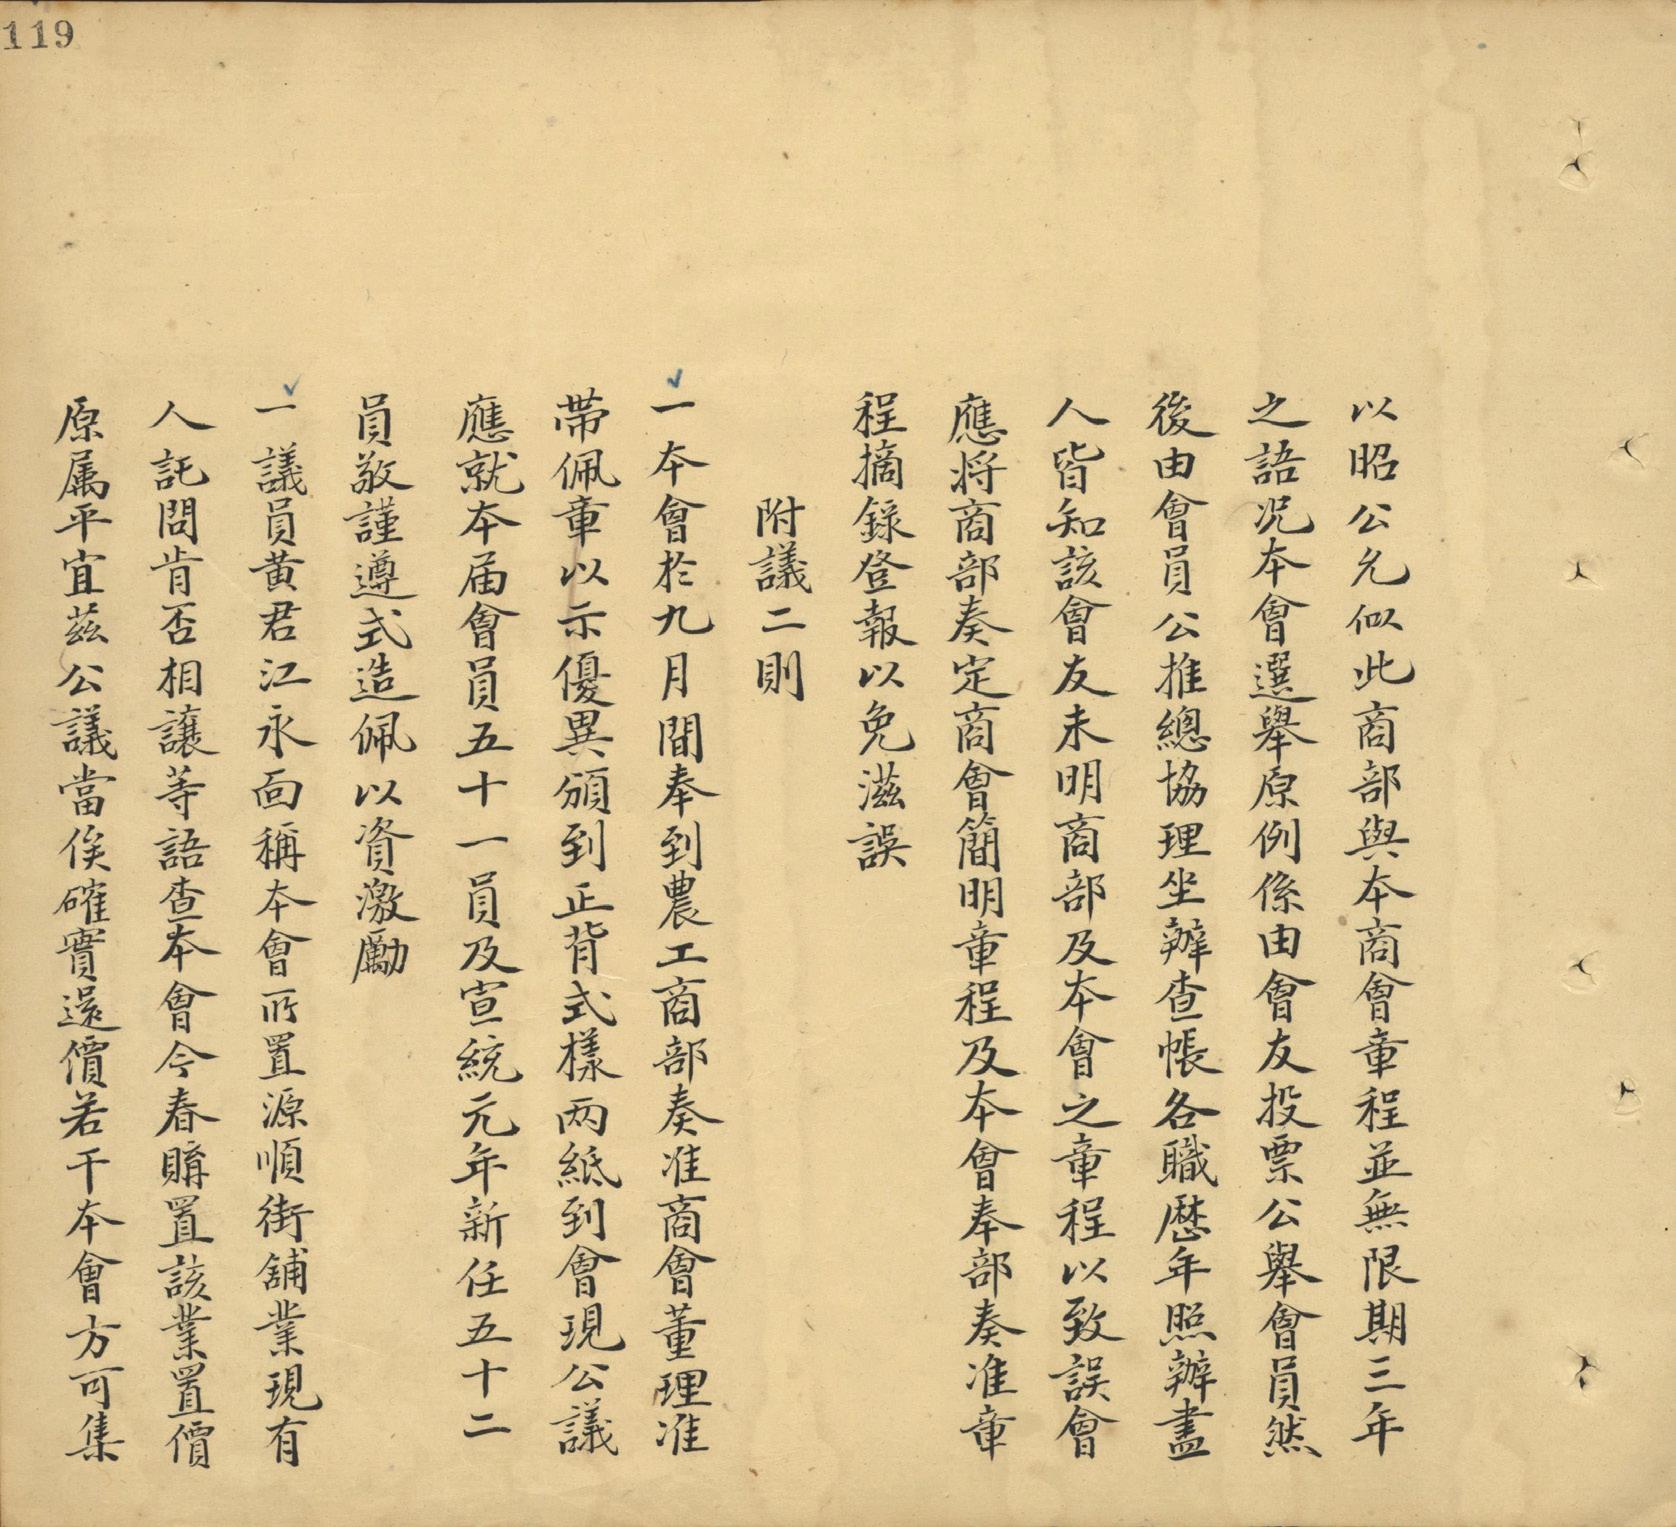 119
以昭公允似此商部與本商會章程並無限期三年
之語况本會選舉原例係由會友投票公舉會員然
後由會員公推總協理坐辦查帳各職歷年照辦盡
人皆知該會友未明商部及本會之章程以致誤會
應將商部奏定商會簡明章程及本會奉部奏准章
程摘錄登報以免滋誤
附議二則
一本會於九月間奉到農工商部奏准商會董理准
帶佩章以示優異頒到正背式樣两紙到會現公議
應就本届會員五十一員及宣統元年新任五十二
員敬謹遵式造佩以資激勵
一議員黃君江永面稱本會所置源順街舖業現有
人託問肯否相讓等語查本會今春購置該業置價
原属平宜茲公議當俟確實還價若干本會方可集